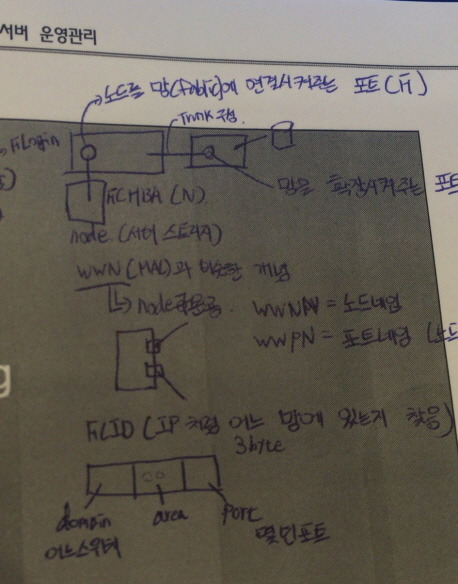 서버 운영관리
노드를 망(Fabric)에 연결시켜주는 포트(F)
Trunk 구성.
FLogin
망을 확장시켜주는 포트
FCHBA (N)
node (서버 스토리지)
WWN (MAC)과 비슷한 개념
node
WWNN = 노드네임
WWPN = 포트네임 (노드
FCID (IP처럼 어느 망에 있는지 찾음)
3byte
domain area port
어느스위치 몇번포트